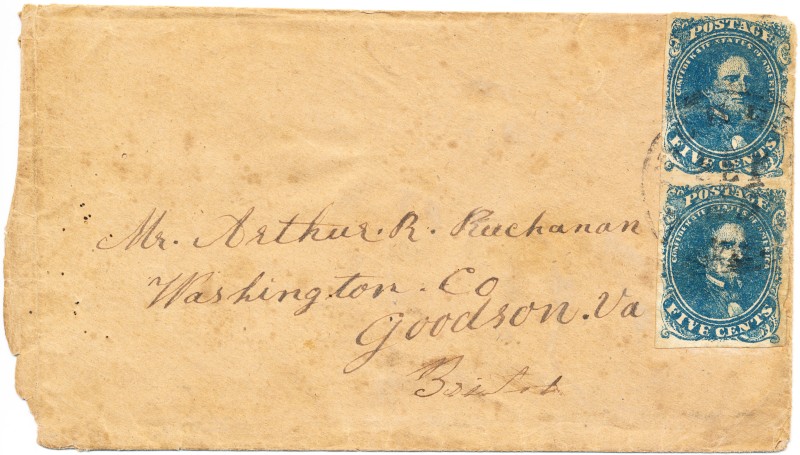 POSTAGE
CONFEDERATE STATES OF AMERICA
FIVE CENTS
POSTAGE
CONFEDERATE STATES OF AMERICA
FIVE CENTS
Mr. Arthur. R. Buchanan
Washington. Co
Goodson. Va
Bristol